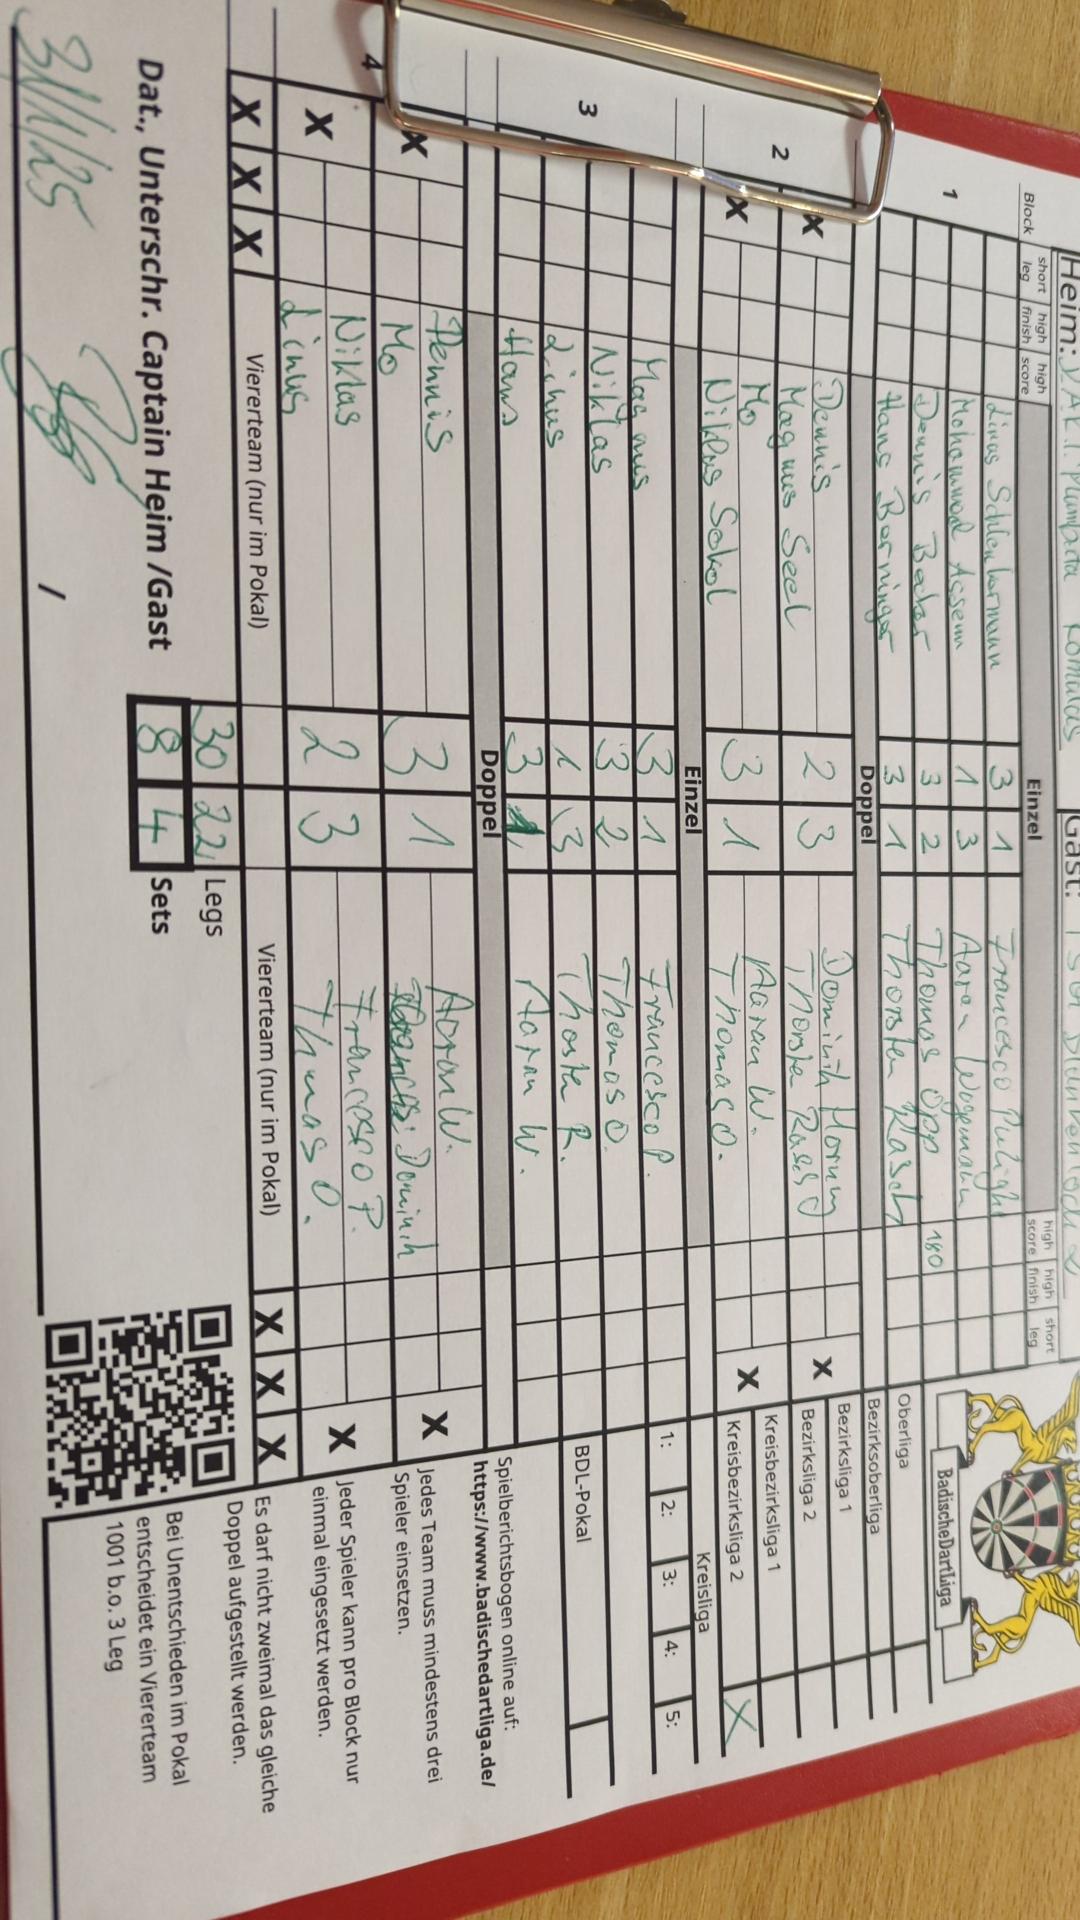 Heim: DAK.I. Plumbata Romulas Gast:
Block short leg high finish high score Einzel high score high finish short leg
1 Linus Schlenkermann 3 1 Francesco
Mohammad Assem 1 3 Aaran Wogemann
Dennis Becker 3 2 Thomas Opp 180
Hans Berninger 3 1 Thorsten Rasch
Doppel
2 X Dennis 2 3 Dominik Hornung X
Magnus Seel Thorsten Rasch
X Mo 3 1 Aaran W. X
Niklas Sokol Thomas O.
Einzel
3 Magnus 3 1 Francesco P.
Niklas 3 2 Thomas O.
Linus 1 3 Thorsten R.
Hans 3 1 Aaran W.
Doppel
4 X Dennis 3 1 Aaran W. X
Mo Dominik
X Niklas 2 3 Francesco P. X
Linus Thomas O.
X X X Viererteam (nur im Pokal) Viererteam (nur im Pokal) X X X
30 22 Legs
Dat., Unterschr. Captain Heim /Gast 8 4 Sets
31/1/25 /
BadischeDartLiga
Oberliga
Bezirksoberliga
Bezirksliga 1
Bezirksliga 2
Kreisbezirksliga 1
Kreisbezirksliga 2 X
Kreisliga
1: 2: 3: 4: 5:
BDL-Pokal
Spielberichtsbogen online auf:
https://www.badischedartliga.de/
Jedes Team muss mindestens drei
Spieler einsetzen.
Jeder Spieler kann pro Block nur
einmal eingesetzt werden.
Es darf nicht zweimal das gleiche
Doppel aufgestellt werden.
Bei Unentschieden im Pokal
entscheidet ein Viererteam
1001 b.o. 3 Leg